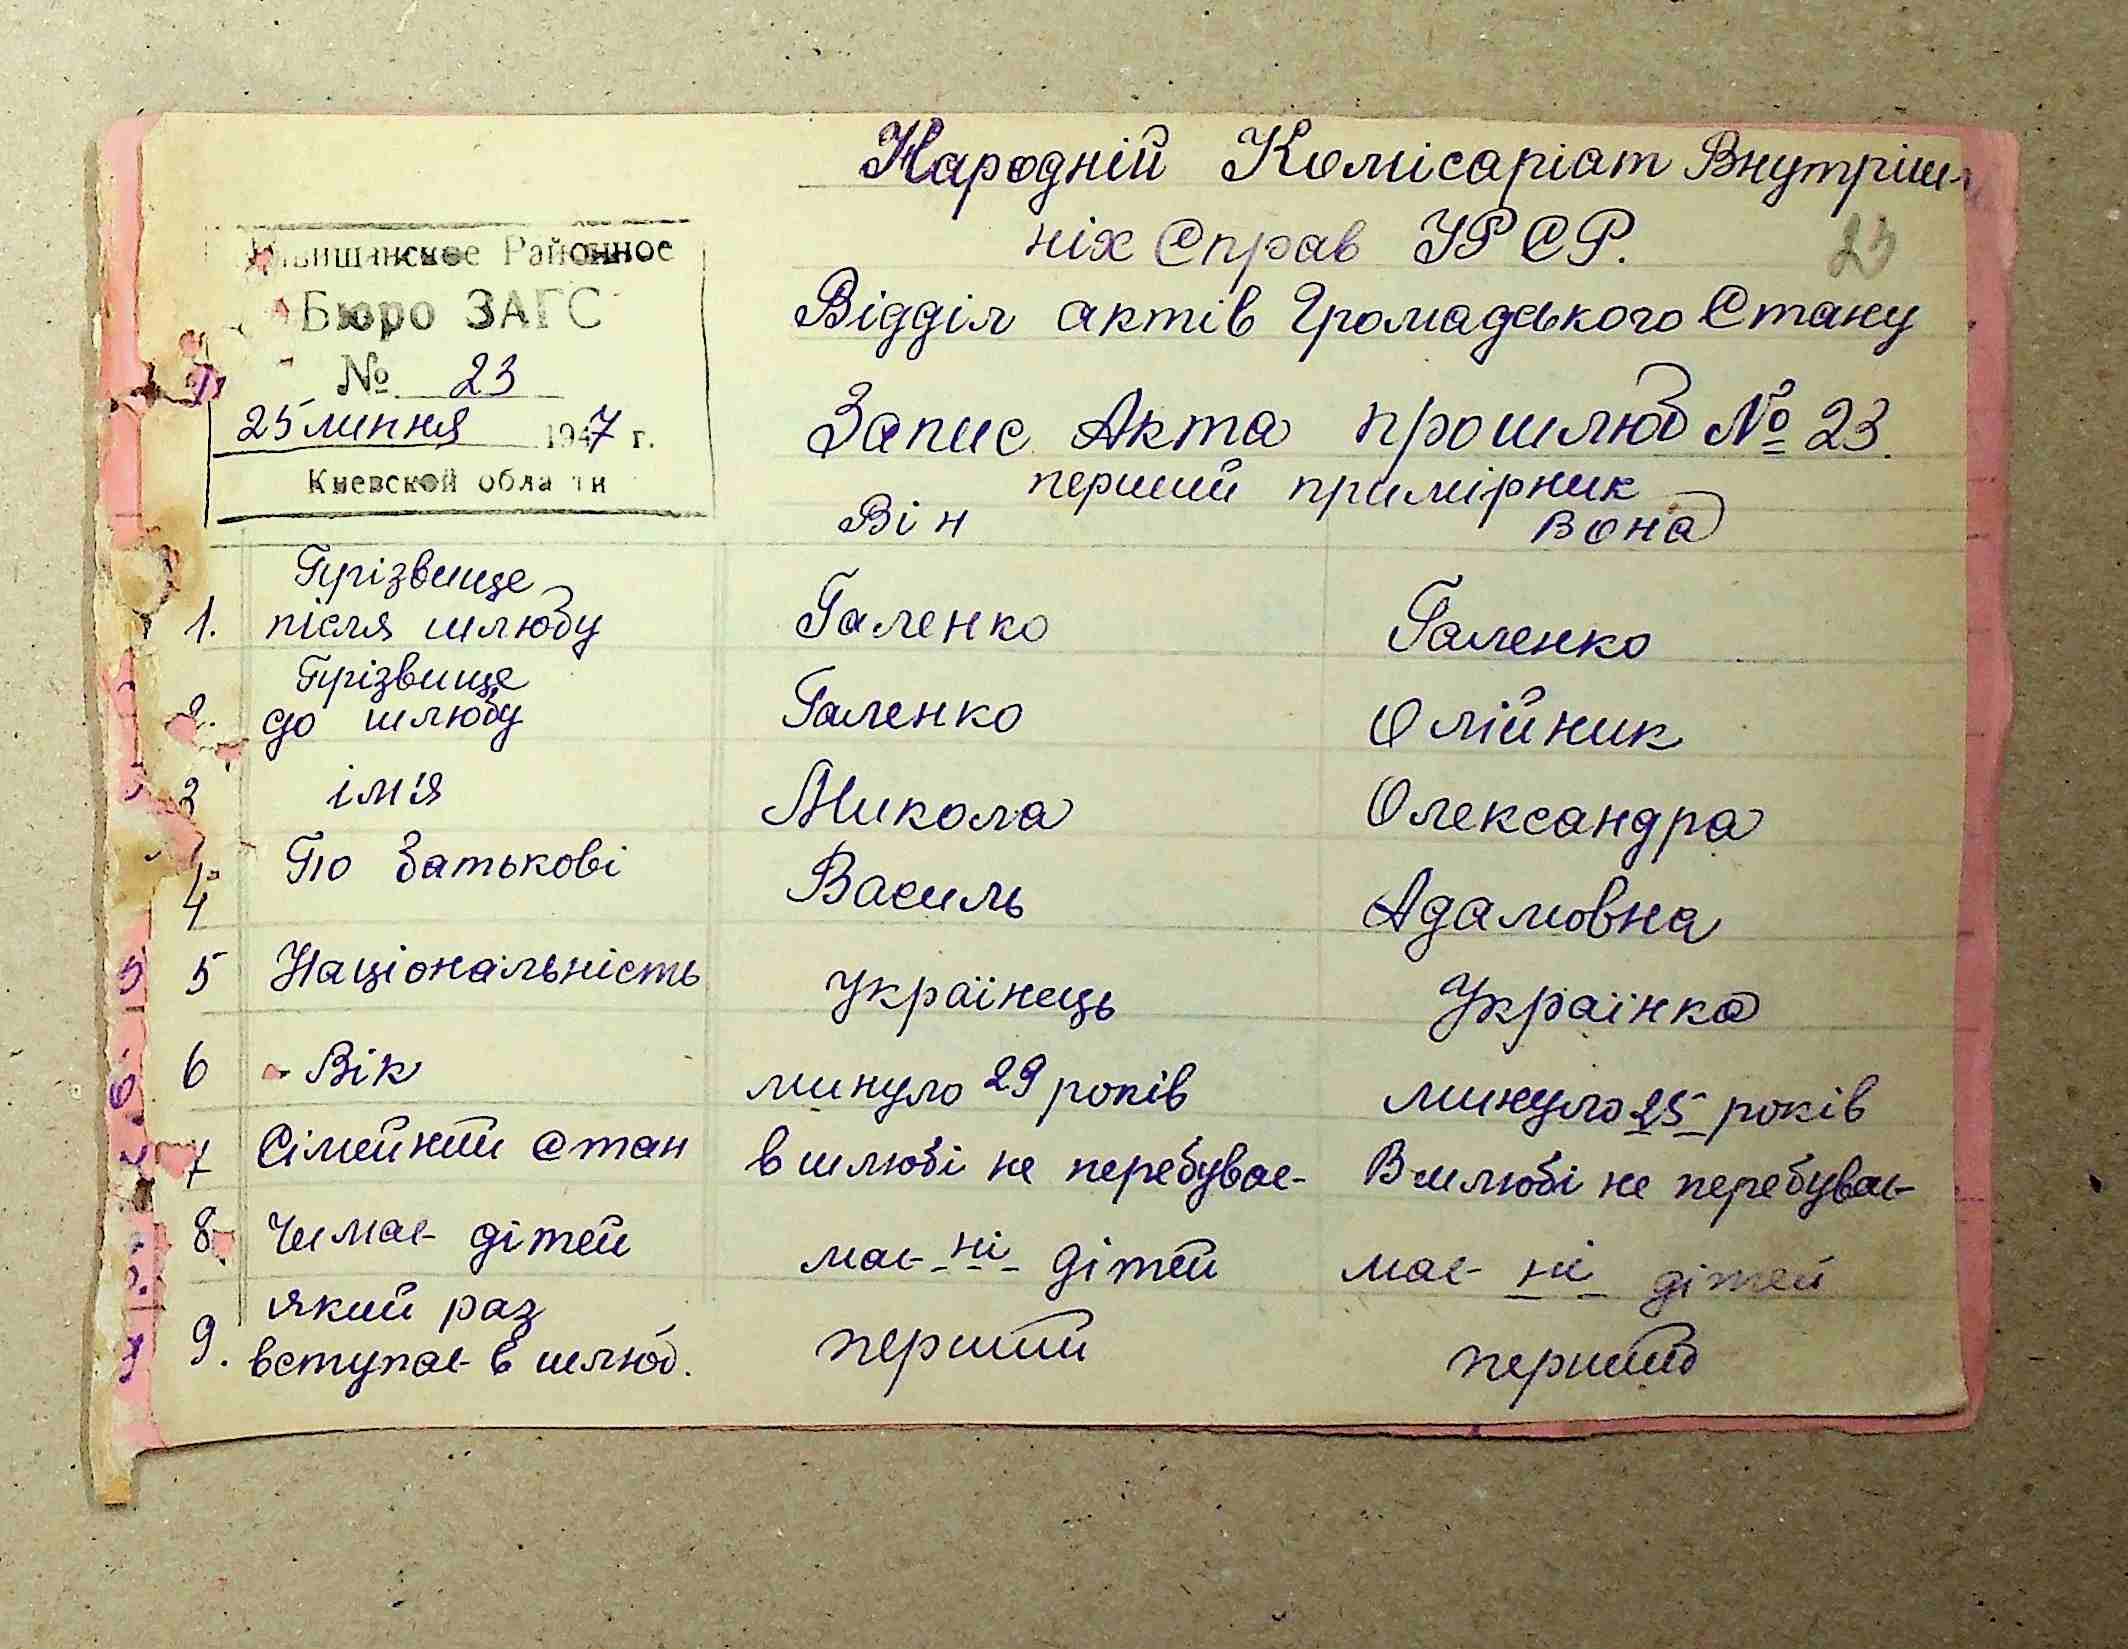 Народній Комісаріат Внутріш-
ніх Справ УРСР.
23
Відділ актів Громадського Стану
Районное
Бюро ЗАГС
№ 23
25 липня 1947 г.
Киевской области
Запис Акта про шлюб № 23.
перший примірник
Він Вона
1. Прізвище після шлюбу Галенко Галенко
2. Прізвище до шлюбу Галенко Олійник
3 ім'я Микола Олександра
4 По батькові Василь Адамовна
5 Національність Українець Українка
6 Вік минуло 29 років минуло 25 років
7 Сімейний стан в шлюбі не перебуває В шлюбі не перебуває
8 Чи має дітей має ні дітей має ні дітей
9. який раз вступає в шлюб. перший перший